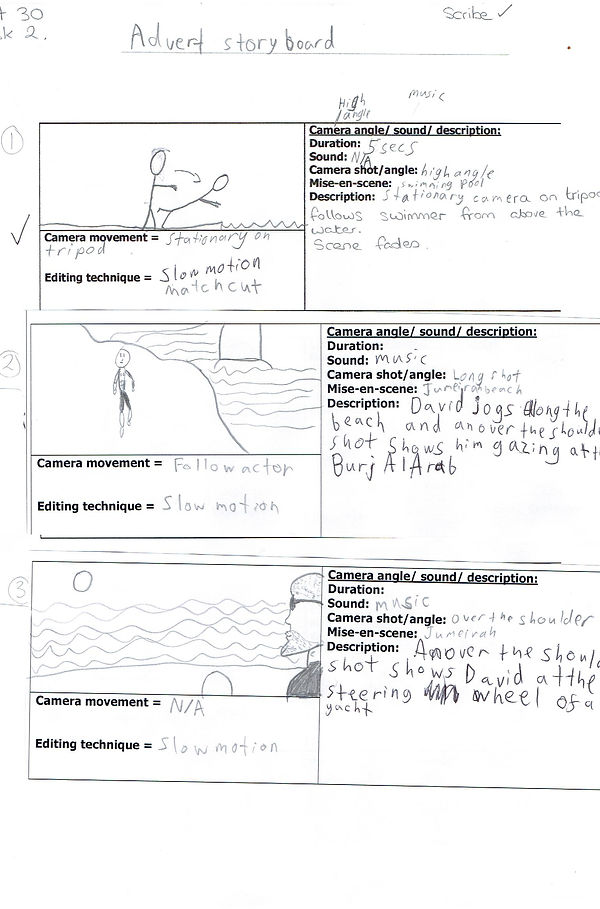 30
k 2.
Scribe ✓
Advert storyboard
High
angle
music
1
Camera angle/ sound/ description:
Duration: 5 secs
Sound: N/A
Camera shot/angle: high angle
Mise-en-scene: swimming pool
Description: Stationary camera on tripo
follows swimmer from above the
water.
Scene fades.
Camera movement = Stationary on
tripod
Editing technique = Slow motion
matchcut
2
Camera angle/ sound/ description:
Duration:
Sound: music
Camera shot/angle: Long shot
Mise-en-scene: Jumeirah beach
Description: David jogs along the
beach and an over the should
shot shows him gazing at th
Burj Al Arab
Camera movement = Follow actor
Editing technique = Slow motion
3
Camera angle/ sound/ description:
Duration:
Sound: music
Camera shot/angle: over the shoulder
Mise-en-scene: Jumeirah
Description: An over the should
shot shows David at the
steering wheel of a
yacht
Camera movement = N/A
Editing technique = Slow motion